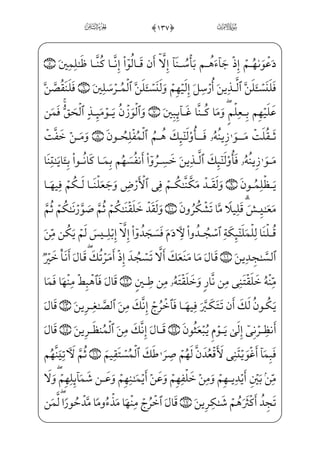 الجزء الثامن ﴿١٣٧﴾ سورة الأعراف
دَعْوَىٰهُمْ إِذْ جَآءَهُم بَأْسُنَآ إِلَّآ أَن قَالُوٓا۟ إِنَّا كُنَّا ظَٰلِمِينَ ۝٥
فَلَنَسْـَٔلَنَّ ٱلَّذِينَ أُرْسِلَ إِلَيْهِمْ وَلَنَسْـَٔلَنَّ ٱلْمُرْسَلِينَ ۝٦ فَلَنَقُصَّنَّ
عَلَيْهِم بِعِلْمٍ ۖ وَمَا كُنَّا غَآئِبِينَ ۝٧ وَٱلْوَزْنُ يَوْمَئِذٍ ٱلْحَقُّ ۚ فَمَن
ثَقُلَتْ مَوَٰزِينُهُۥ فَأُو۟لَٰٓئِكَ هُمُ ٱلْمُفْلِحُونَ ۝٨ وَمَنْ خَفَّتْ
مَوَٰزِينُهُۥ فَأُو۟لَٰٓئِكَ ٱلَّذِينَ خَسِرُوٓا۟ أَنفُسَهُم بِمَا كَانُوا۟ بِـَٔايَٰتِنَا
يَظْلِمُونَ ۝٩ وَلَقَدْ مَكَّنَّٰكُمْ فِى ٱلْأَرْضِ وَجَعَلْنَا لَكُمْ فِيهَا
مَعَٰيِشَ ۗ قَلِيلًا مَّا تَشْكُرُونَ ۝١٠ وَلَقَدْ خَلَقْنَٰكُمْ ثُمَّ صَوَّرْنَٰكُمْ ثُمَّ
قُلْنَا لِلْمَلَٰٓئِكَةِ ٱسْجُدُوا۟ لِـَٔادَمَ فَسَجَدُوٓا۟ إِلَّآ إِبْلِيسَ لَمْ يَكُن مِّنَ
ٱلسَّٰجِدِينَ ۝١١ قَالَ مَا مَنَعَكَ أَلَّا تَسْجُدَ إِذْ أَمَرْتُكَ ۖ قَالَ أَنَا۠ خَيْرٌ
مِّنْهُ خَلَقْتَنِى مِن نَّارٍ وَخَلَقْتَهُۥ مِن طِينٍ ۝١٢ قَالَ فَٱهْبِطْ مِنْهَا فَمَا
يَكُونُ لَكَ أَن تَتَكَبَّرَ فِيهَا فَٱخْرُجْ إِنَّكَ مِنَ ٱلصَّٰغِرِينَ ۝١٣ قَالَ
أَنظِرْنِىٓ إِلَىٰ يَوْمِ يُبْعَثُونَ ۝١٤ قَالَ إِنَّكَ مِنَ ٱلْمُنظَرِينَ ۝١٥ قَالَ
فَبِمَآ أَغْوَيْتَنِى لَأَقْعُدَنَّ لَهُمْ صِرَٰطَكَ ٱلْمُسْتَقِيمَ ۝١٦ ثُمَّ لَـَٔاتِيَنَّهُم
مِّنۢ بَيْنِ أَيْدِيهِمْ وَمِنْ خَلْفِهِمْ وَعَنْ أَيْمَٰنِهِمْ وَعَن شَمَآئِلِهِمْ ۖ وَلَا
تَجِدُ أَكْثَرَهُمْ شَٰكِرِينَ ۝١٧ قَالَ ٱخْرُجْ مِنْهَا مَذْءُومًا مَّدْحُورًا ۖ لَّمَن